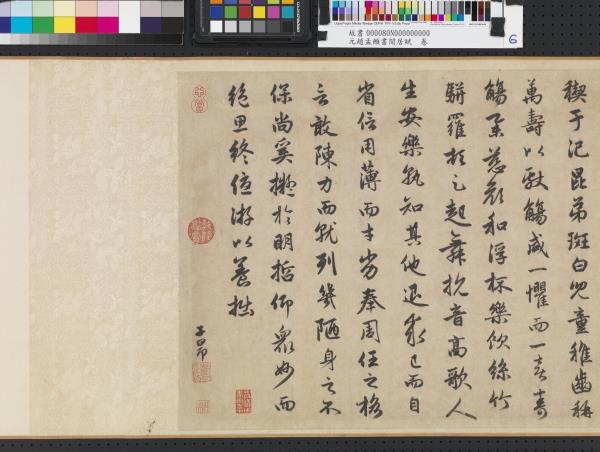 故書 000080N000000000
元趙孟頫書閒居賦 卷
6
稧于汜昆弟斑白兒童稚齒稱
萬壽以獻觴咸一懼而一喜壽
觴舉慈顏和浮杯樂飲絲竹
駢羅頓足起舞抗音高歌人
生安樂孰知其他退求己而自
省信用薄而才劣奉周任之格
言敢陳力而就列幾陋身之不
保尚奚擬於明哲仰眾妙而
絕思終優游以養拙
子昂